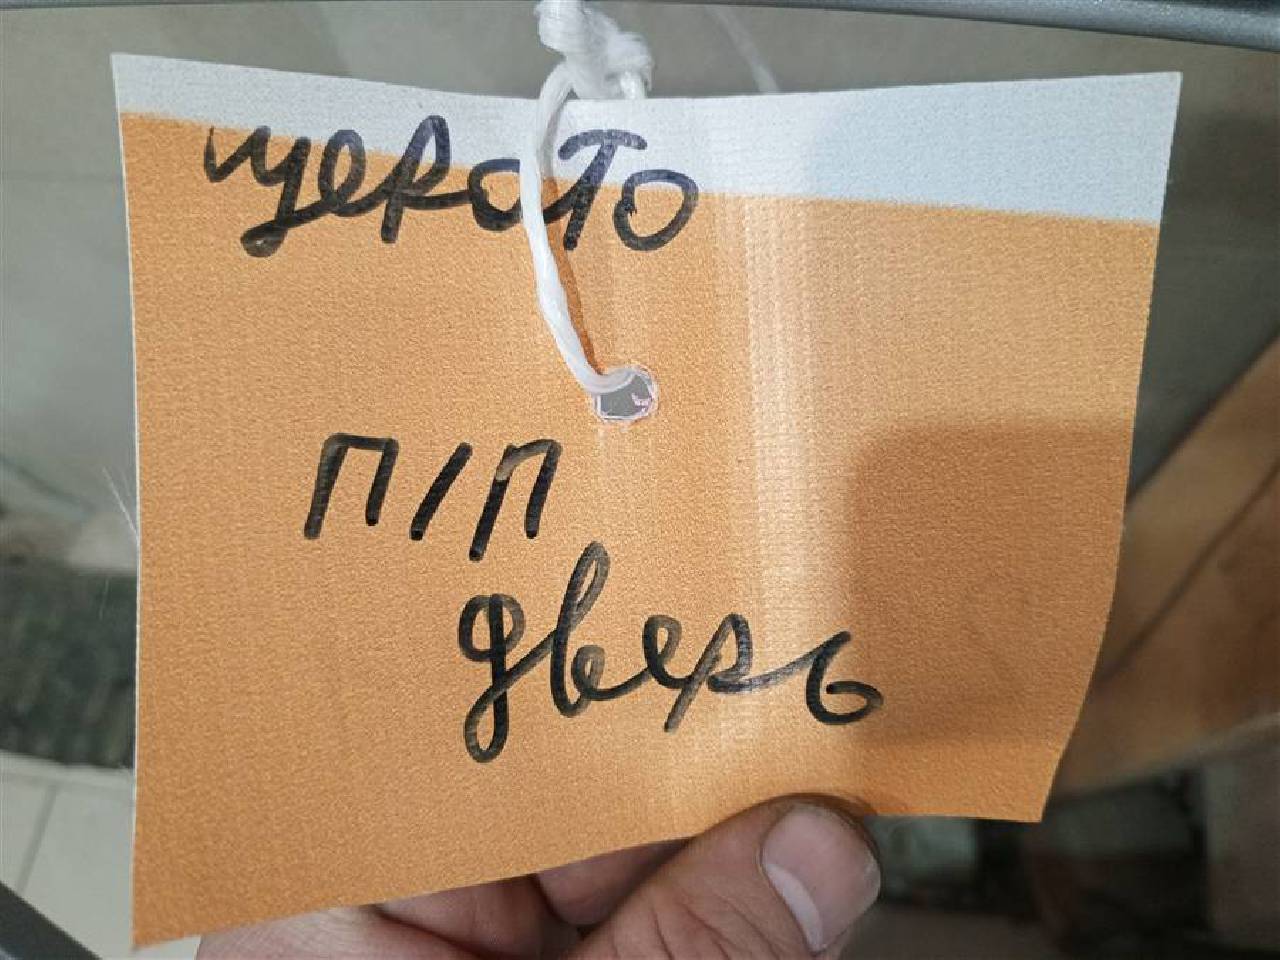 церато
п/п
дверь